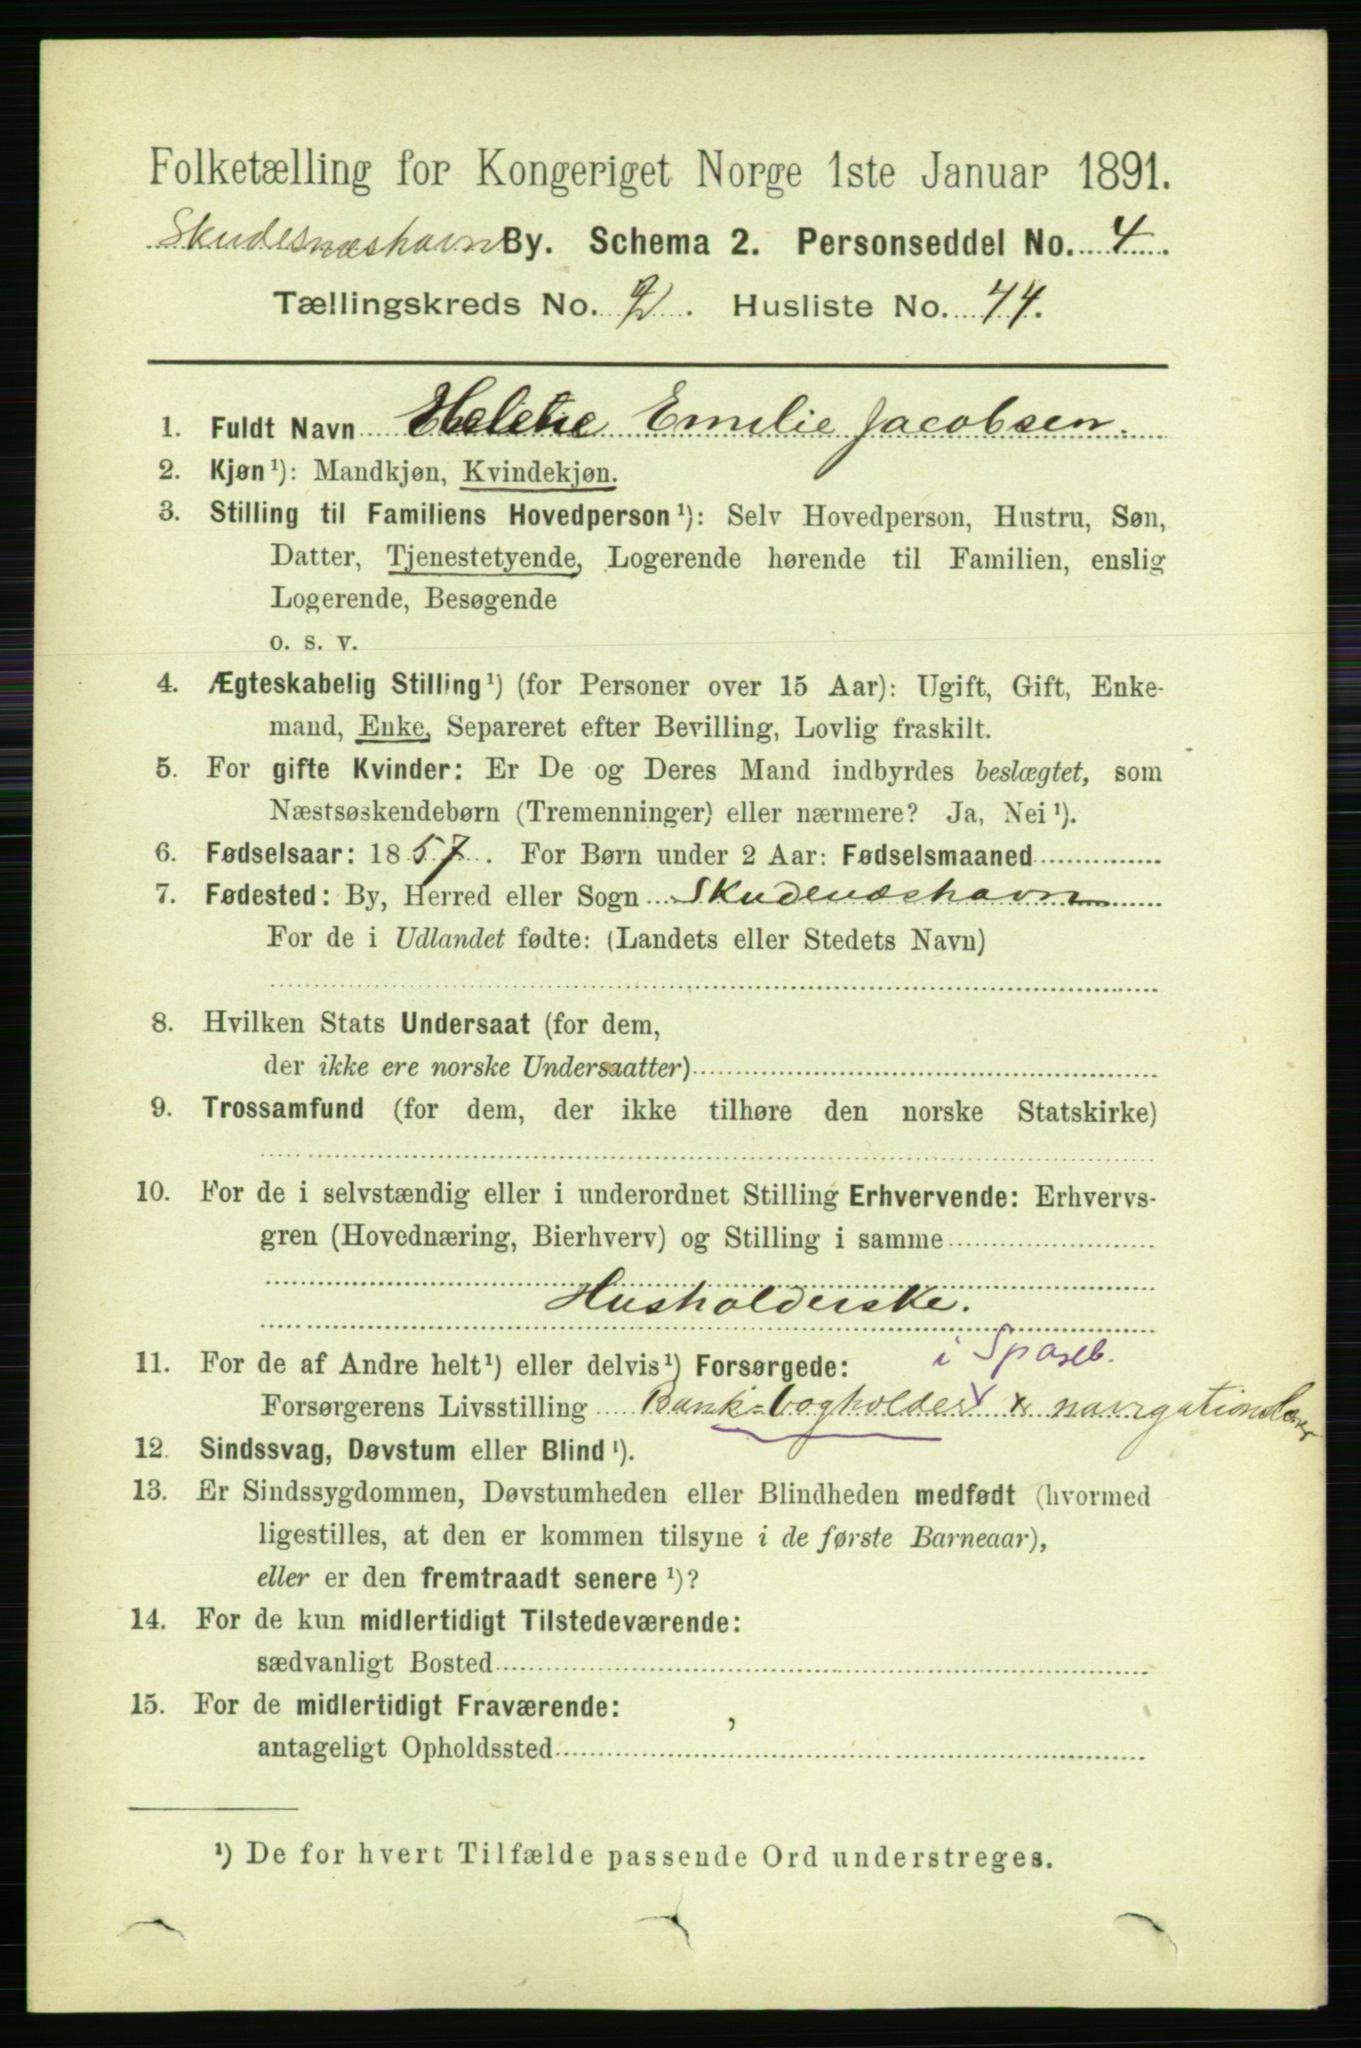 Folketælling for Kongeriget Norge 1ste Januar 1891.
Skudesnæshavn By. Schema 2. Personseddel No. 4.
Tællingskreds No. 2. Husliste No. 74.
1. Fuldt Navn Helene Emilie Jacobsen.
2. Kjøn¹): Mandkjøn, Kvindekjøn.
3. Stilling til Familiens Hovedperson¹): Selv Hovedperson, Hustru, Søn,
Datter, Tjenestetyende, Logerende hørende til Familien, enslig
Logerende, Besøgende
o. s. v.
4. Ægteskabelig Stilling¹) (for Personer over 15 Aar): Ugift, Gift, Enke-
mand, Enke, Separeret efter Bevilling, Lovlig fraskilt.
5. For gifte Kvinder: Er De og Deres Mand indbyrdes beslægtet, som
Næstsøskendebørn (Tremenninger) eller nærmere? Ja, Nei¹).
6. Fødselsaar: 1857. For Børn under 2 Aar: Fødselsmaaned
7. Fødested: By, Herred eller Sogn Skudenæshavn
For de i Udlandet fødte: (Landets eller Stedets Navn)
8. Hvilken Stats Undersaat (for dem,
der ikke ere norske Undersaatter)
9. Trossamfund (for dem, der ikke tilhøre den norske Statskirke)
10. For de i selvstændig eller i underordnet Stilling Erhvervende: Erhvervs-
gren (Hovednæring, Bierhverv) og Stilling i samme
Husholderske.
i Spareb.
11. For de af Andre helt¹) eller delvis¹) Forsørgede:
Forsørgerens Livsstilling Bank-bogholder & navigationslærer
12. Sindssvag, Døvstum eller Blind¹).
13. Er Sindssygdommen, Døvstumheden eller Blindheden medfødt (hvormed
ligestilles, at den er kommen tilsyne i de første Barneaar),
eller er den fremtraadt senere¹)?
14. For de kun midlertidigt Tilstedeværende:
sædvanligt Bosted
15. For de midlertidigt Fraværende:
antageligt Opholdssted
¹) De for hvert Tilfælde passende Ord understreges.